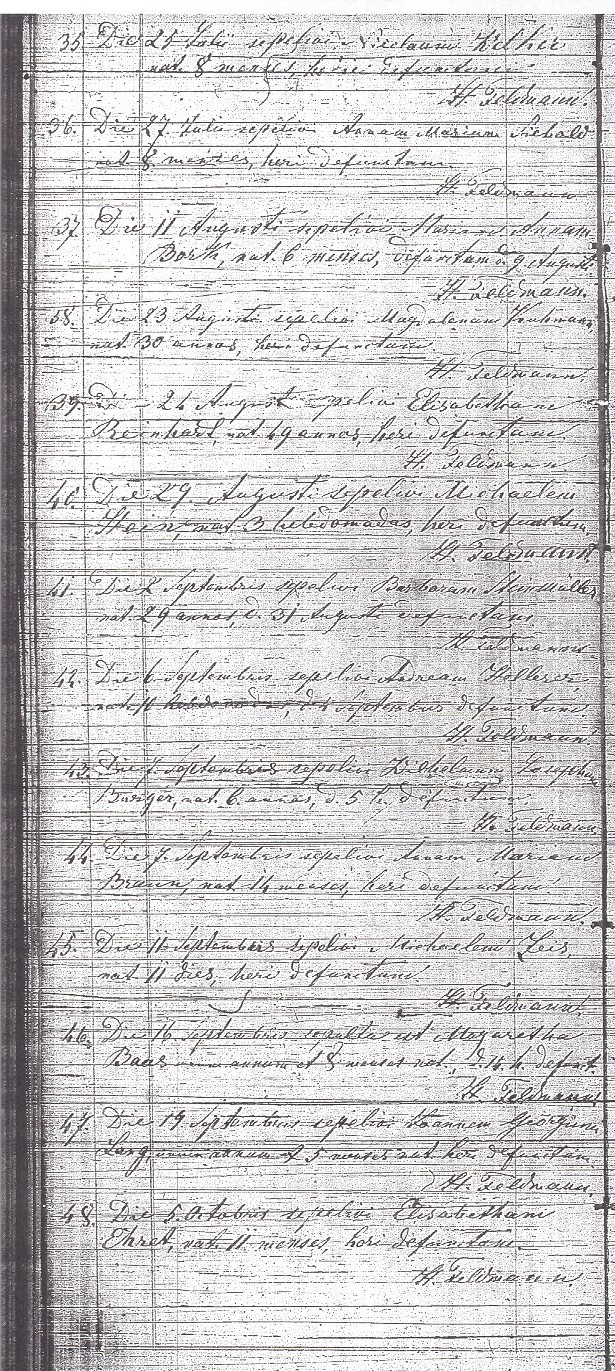 35. Die 25 Julii sepelivi Nicolaum Kilher
nat. 8 menses, heri defunctum.
H. Feldmann.
36. Die 27. Julii sepelivi Annam Mariam Siebold
nat 8 menses, heri defunctam.
H. Feldmann
37. Die 11 Augusti sepelivi Mariam Annam
Bork, nat. 6 menses, defunctam d. 9 Augusti.
H. Feldmann.
38. Die 23 Augusti sepelivi Magdalenam
nat 30 annos, heri defunctam.
H. Feldmann.
39. Die 24 August sepelivi Elisabetham
Reinhart, nat. 49 annos, heri defunctam
H. Feldmann
40. Die 29. Augusti sepelivi Michaelem
Stein, nat 3 hebdomadas, heri defunctum.
H. Feldmann
41. Die 2 Septembris sepelivi Barbaram Steinmüller
nat. 29 annos, d. 31 Augusti defunctam.
H. Feldmann
42. Die 6 Septembris sepelivi Andream Hollerer
nat. 11 hebdomadas, d. 4 Septembris defunctum
H. Feldmann
43. Die 7. Septembris sepelivi Wilhelmum Josephum
Burger, nat. 6 annos, d. 5 h. defunctum.
H. Feldmann
44. Die 7. Septembris sepelivi Annam Mariam
Braun, nat. 14 menses, heri defunctam
H. Feldmann.
45. Die 11 Septembris sepelivi Michaelem Zeis,
nat 11 dies, heri defunctum.
H. Feldmann.
46. Die 16 Septembris sepulta est Magaretha
Baas unum annum et 8 menses nat., d. 14 h. defunct.
H. Feldmann
47. Die 19 Septembris sepelivi Joannem Georgium
Lang, unum annum et 5 menses nat. heri defunctum.
H. Feldmann.
48. Die 5. Octobris sepelivi Elisabetham
Ehret, nat. 11 menses, heri defunctam.
H. Feldmann.